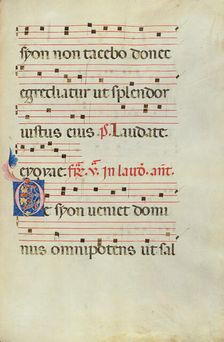 syon non tacebo donec
egrediatur ut splendor
iustus eius. ps. Laudate.
euouae. in laud. ant.
Ex syon veniet domi
nus omnipotens ut sal